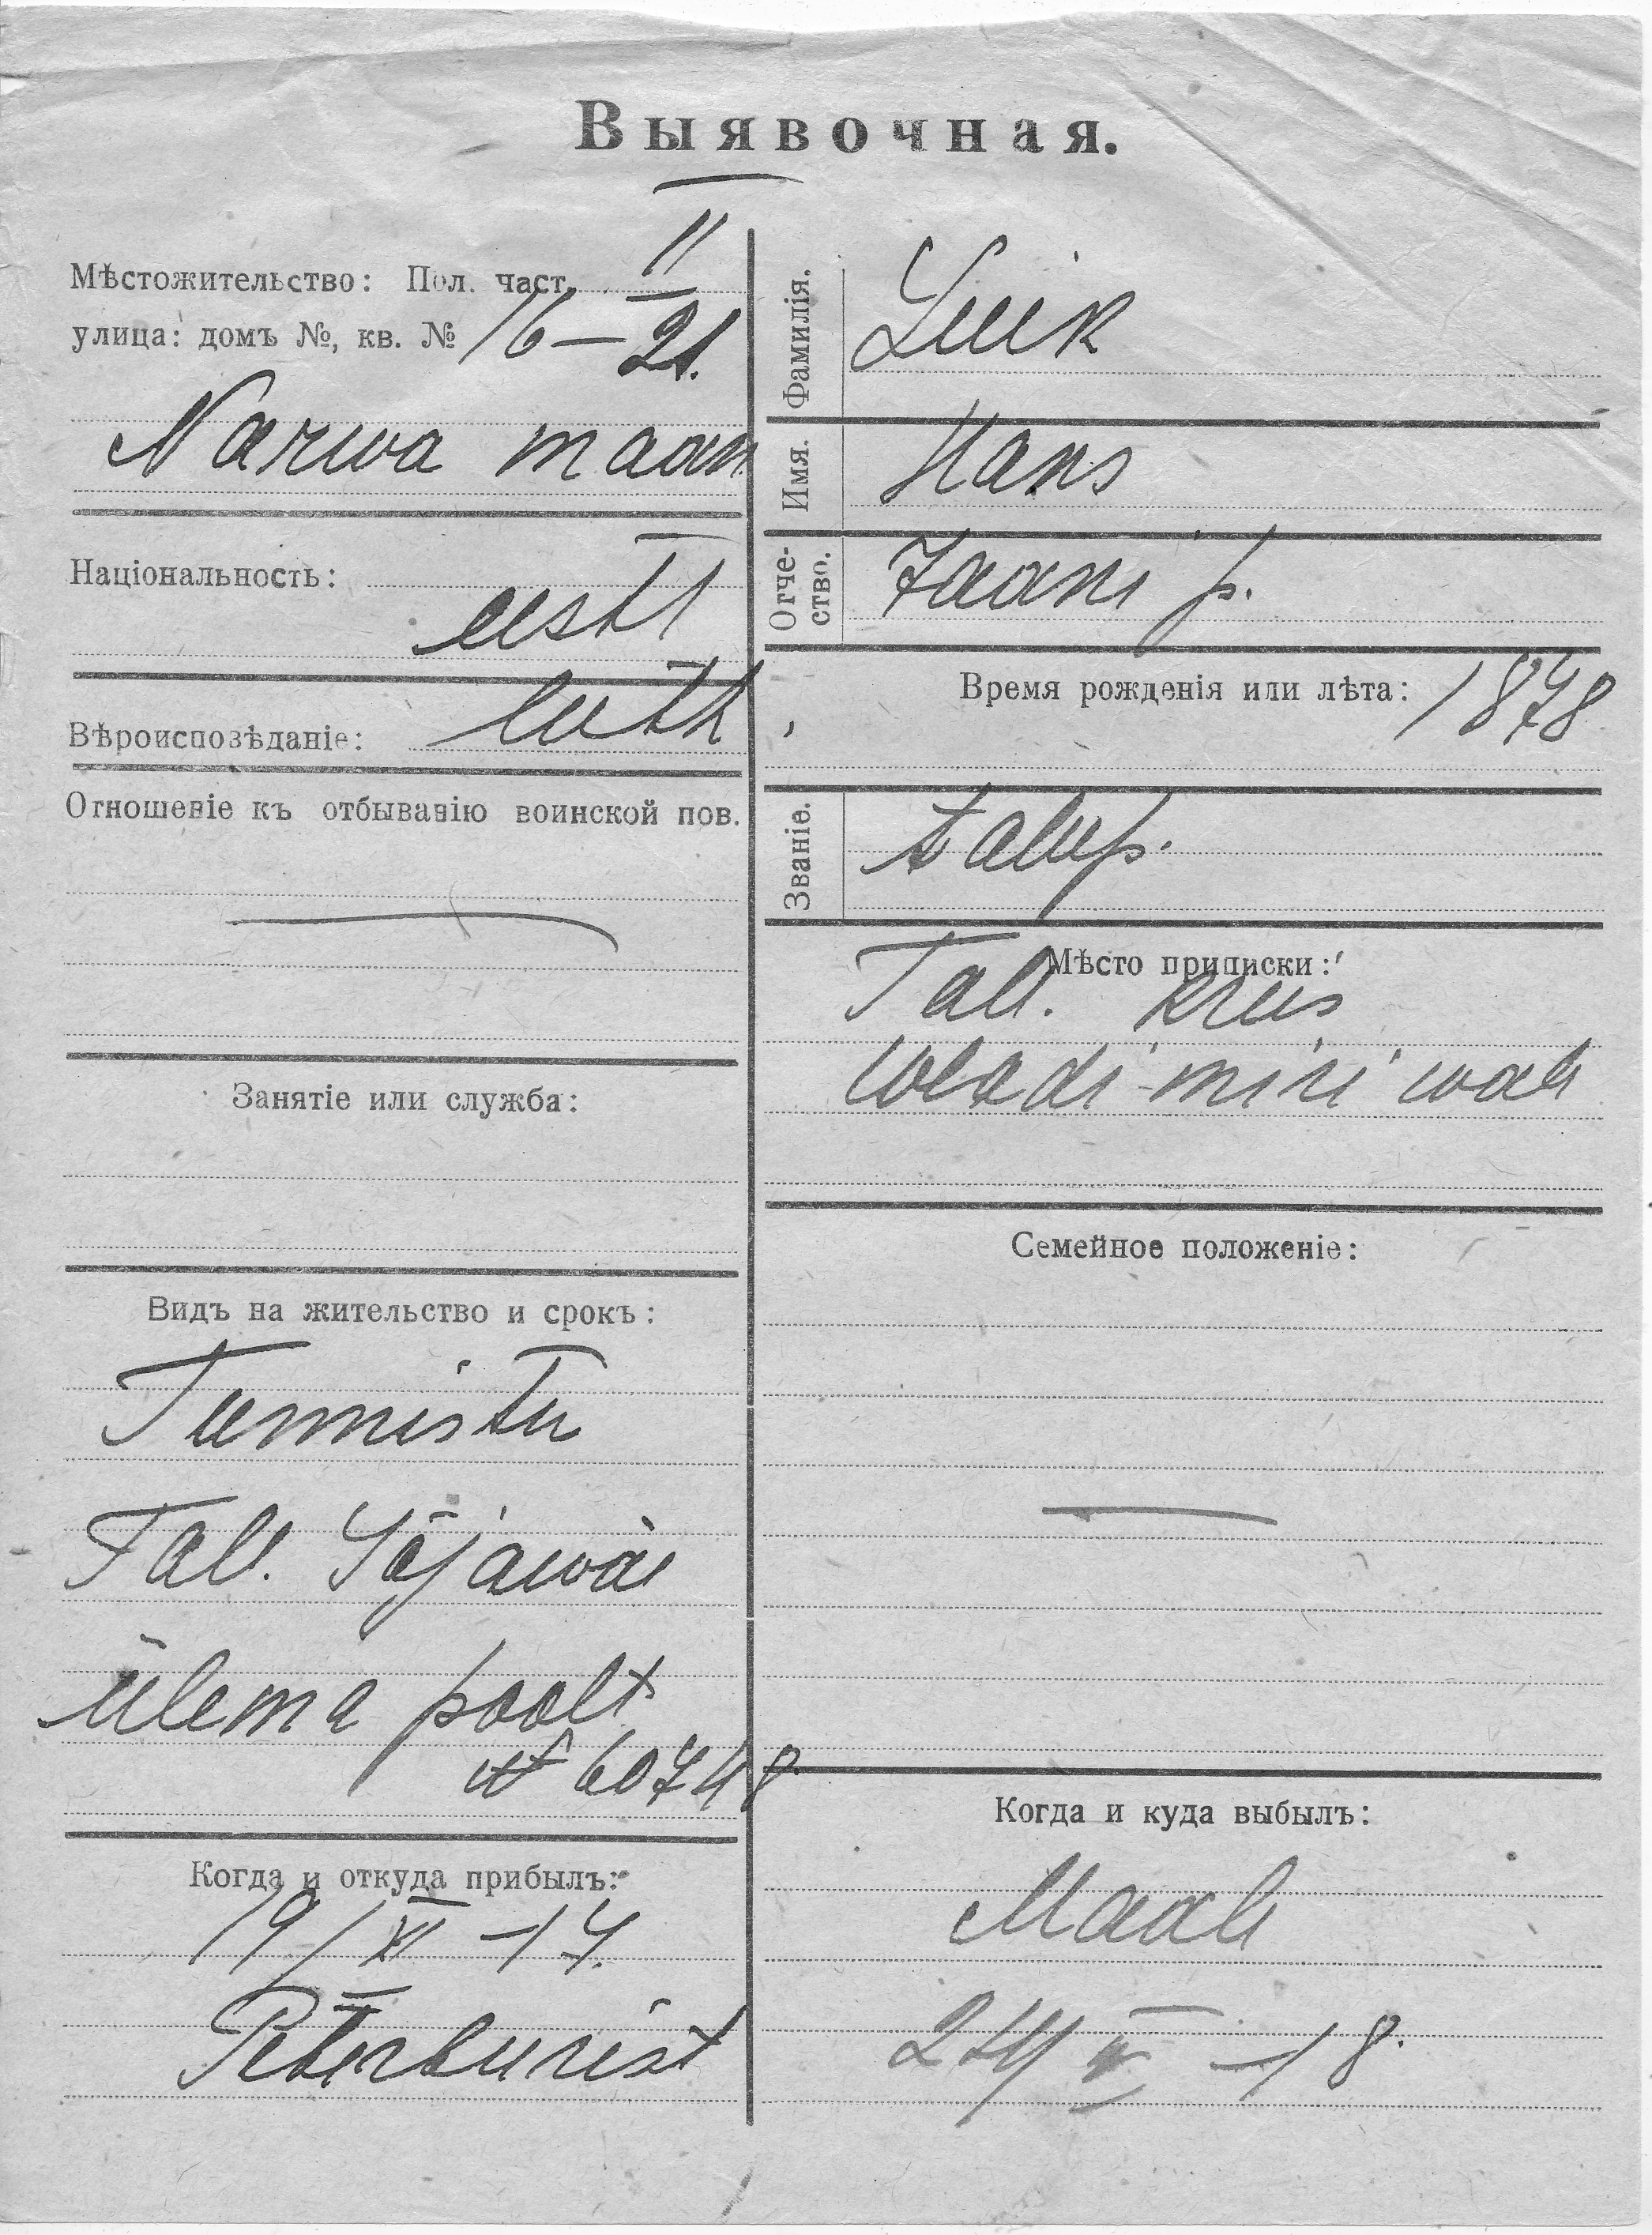 Выявочная.
Мѣстожительство: Пол. част. II
улица: домъ №, кв. № 16–21.
Narwa maan
Національность:
eesti
Вѣроисповѣданіе: luth
Отношеніе къ отбыванію воинской пов.
Занятіе или служба:
Видъ на жительство и срокъ:
Tunnistu
Tall. Sõjawäe
ülema poolt
№ 60748
Когда и откуда прибылъ:
19/XI –17.
Peterburist
Фамилія. Luik
Имя. Hans
Отче-
ство. Jaani p.
Время рожденія или лѣта: 1878
Званіе. talup.
Мѣсто приписки:
Tall. kreis
Wladimiri wall
Семейное положеніе:
Когда и куда выбылъ:
Maale
–18.